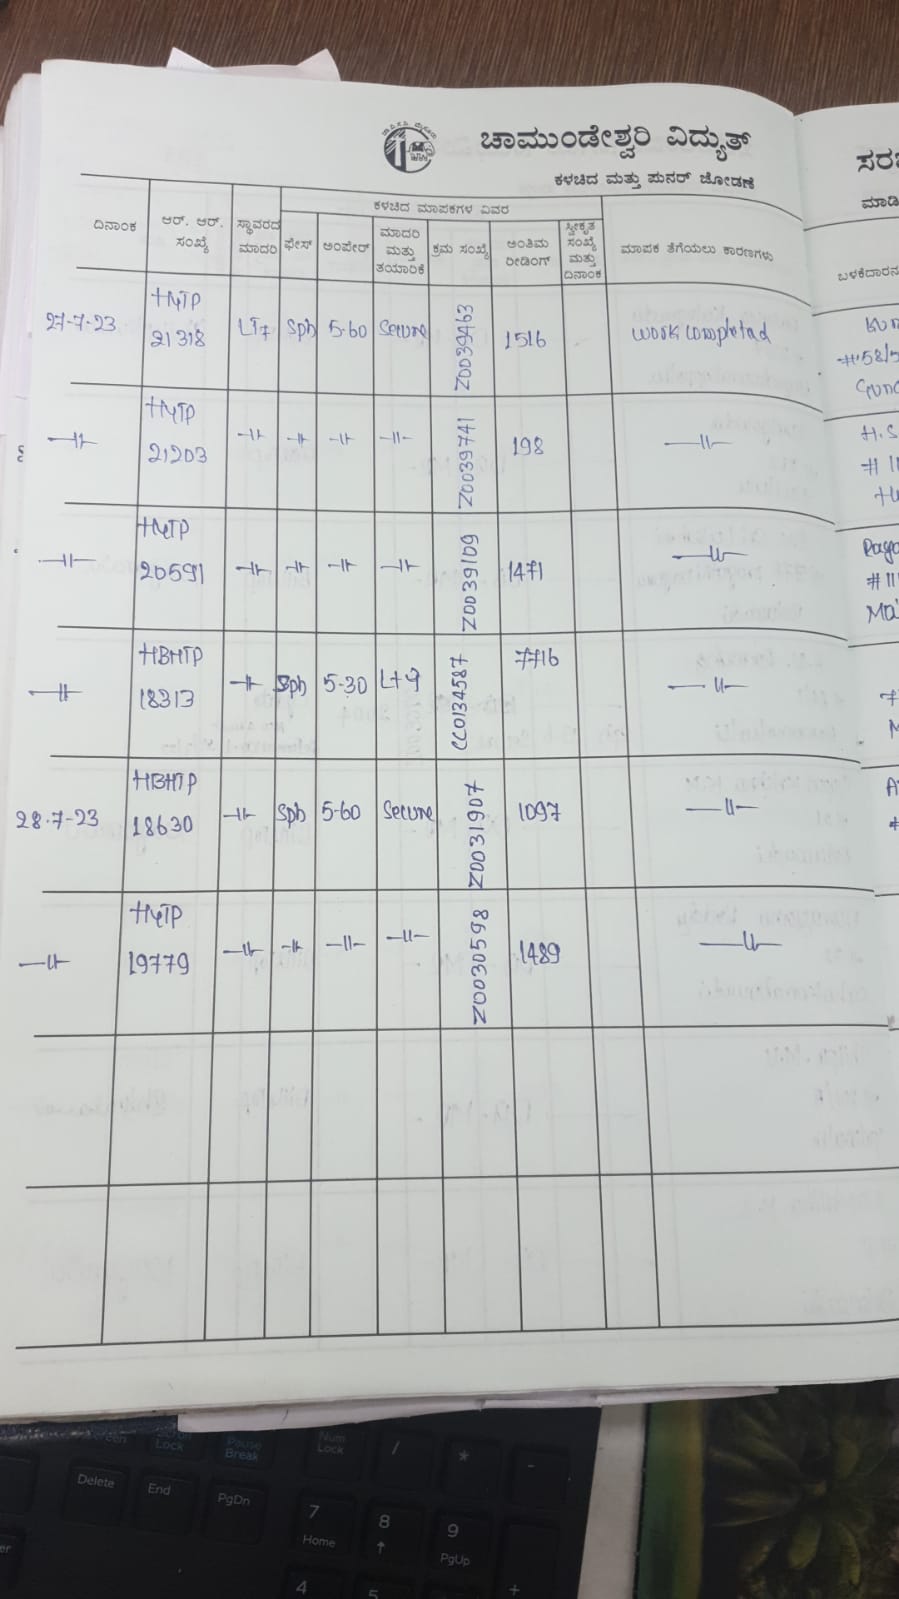 ಚಾಮುಂಡೇಶ್ವರಿ ವಿದ್ಯುತ್
ಕಳಚಿದ ಮತ್ತು ಪುನರ್ ಜೋಡಣೆ
ದಿನಾಂಕ
ಆರ್. ಆರ್. ಸಂಖ್ಯೆ
ಸ್ಥಾವರದ ಮಾದರಿ
ಕಳಚಿದ ಮಾಪಕಗಳ ವಿವರ
ಫೇಸ್
ಅಂಪೇರ್
ಮಾದರಿ ಮತ್ತು ತಯಾರಿಕೆ
ಕ್ರಮ ಸಂಖ್ಯೆ
ಅಂತಿಮ ರೀಡಿಂಗ್
ಸ್ವೀಕೃತ ಸಂಖ್ಯೆ ಮತ್ತು ದಿನಾಂಕ
ಮಾಪಕ ತೆಗೆಯಲು ಕಾರಣಗಳು
27-7-23 HYTP 21318 LT7 Sph 5-60 Secure Z0039463 1516 work completad
—||— HYTP 21203 —||— —||— —||— —||— Z0039741 198 —||—
—||— HYTP 20591 —||— —||— —||— —||— Z0039109 1471 —||—
—||— HBHTP 18313 —||— Sph 5-30 CC0134587 7716 —||—
28-7-23 HBHTP 18630 —||— Sph 5-60 Secure Z0031907 1097 —||—
—||— HYTP 19779 —||— —||— —||— —||— Z0030598 1489 —||—
Lock
Pause
Break
Num
Lock
/
*
-
Delete
End
PgDn
7
Home
8
↑
9
PgUp
4
5
+